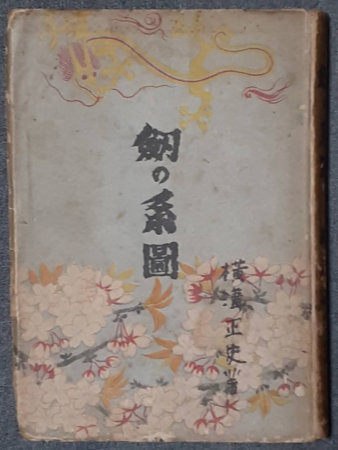 釼の系圖
横溝正史著